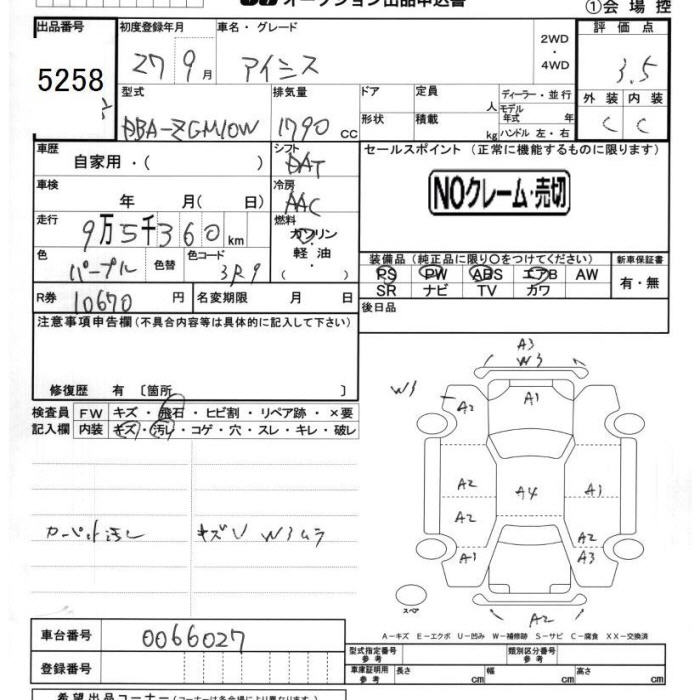 オークション出品申込書
①会 場 控
出品番号 初度登録年月 車名・グレード 2WD ・ 4WD 評 価 点
5258 27 9月 アイシス 3.5
型式 排気量 ドア 定員 人 ディーラー・並行 外 装 内 装
モデル
DBA-ZGM10W 1790 cc 形状 積載 kg 年式 年 C C
ハンドル 左・右
車歴 自家用・( ) シフト DAT セールスポイント (正常に機能するものに限ります)
車検 年 月( 日) 冷房 AAC NOクレーム・売切
走行 9万5千360km 燃料 ガソリン
軽 油
( )
色 パープル 色替 色コード 3R9 装備品(純正品に限り〇をつけてください) 新車保証書
PS PW ABS エアB AW 有・無
SR ナビ TV カワ
R券 10670 円 名変期限 月 日 後日品
注意事項申告欄(不具合内容等は具体的に記入して下さい)
修復歴 有 〔箇所 〕
検査員 FW キズ・飛石・ヒビ割・リペア跡・×要
記入欄 内装 キズ・汚レ・コゲ・穴・スレ・キレ・破レ
カーペット汚レ キズU W3ムラ
A3
W3
W3
A2 A1 A2
A2 A4 A1
A2 A2
A1 A3
スペア A2
A-キズ E-エクボ U-凹み W-補修跡 S-サビ C-腐食 XX-交換済
車台番号 0066027
型式指定番号 参 考 類別区分番号 参 考
登録番号 車庫証明用 参 考 長さ cm 幅 cm 高さ cm
希望出品コーナー(コーナーは各会場により異なります。)